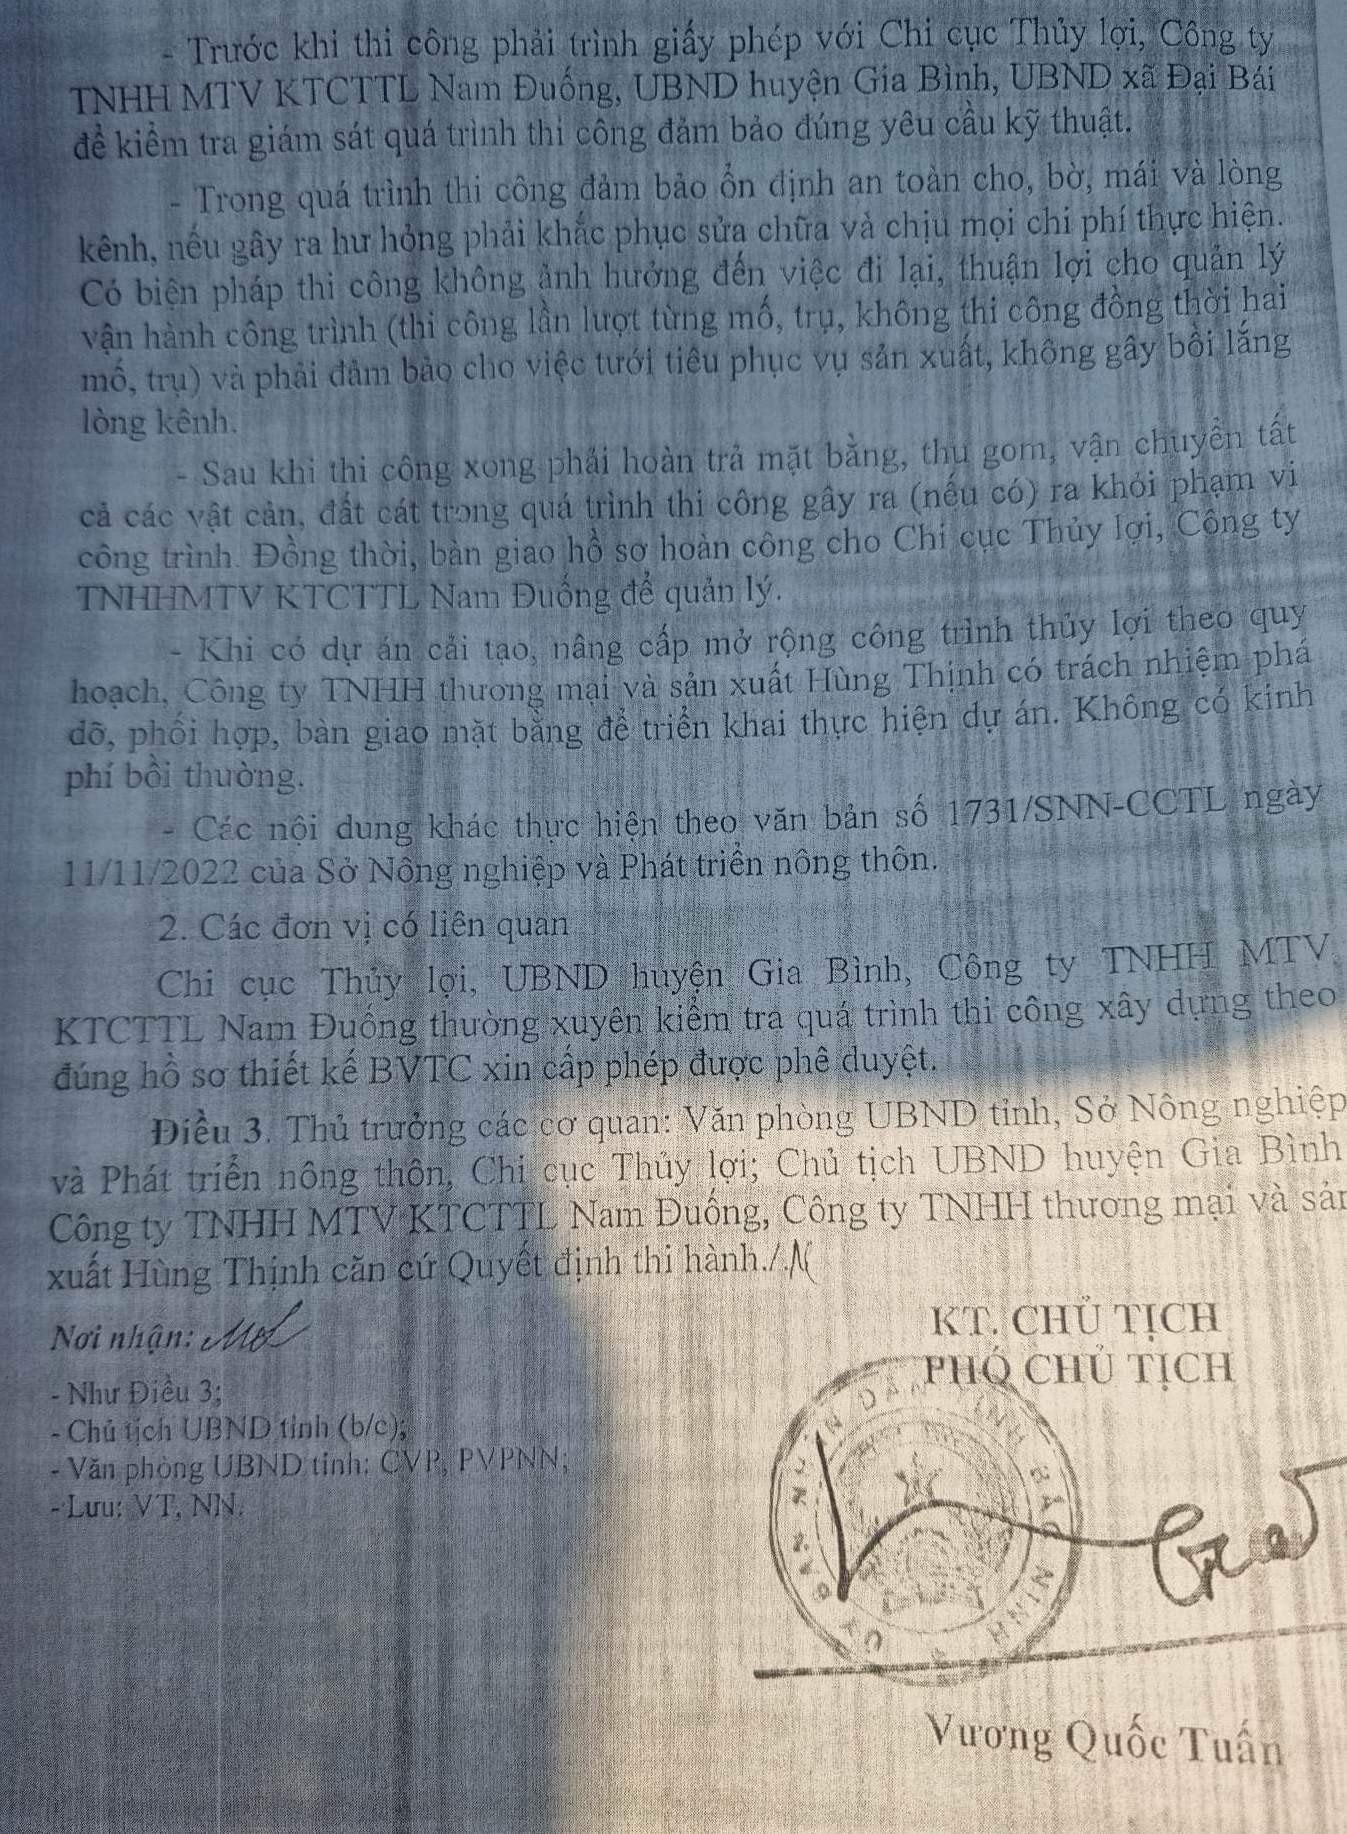 - Trước khi thi công phải trình giấy phép với Chi cục Thủy lợi, Công ty
TNHH MTV KTCTTL Nam Đuống, UBND huyện Gia Bình, UBND xã Đại Bái
để kiểm tra giám sát quá trình thi công đảm bảo đúng yêu cầu kỹ thuật.
- Trong quá trình thi công đảm bảo ổn định an toàn cho, bờ, mái và lòng
kênh, nếu gây ra hư hỏng phải khắc phục sửa chữa và chịu mọi chi phí thực hiện.
Có biện pháp thi công không ảnh hưởng đến việc đi lại, thuận lợi cho quản lý
vận hành công trình (thi công lần lượt từng mố, trụ, không thi công đồng thời hai
mố, trụ) và phải đảm bảo cho việc tưới tiêu phục vụ sản xuất, không gây bồi lắng
lòng kênh.
- Sau khi thi công xong phải hoàn trả mặt bằng, thu gom, vận chuyển tất
cả các vật cản, đất cát trong quá trình thi công gây ra (nếu có) ra khỏi phạm vi
công trình. Đồng thời, bàn giao hồ sơ hoàn công cho Chi cục Thủy lợi, Công ty
TNHHMTV KTCTTL Nam Đuống để quản lý.
- Khi có dự án cải tạo, nâng cấp mở rộng công trình thủy lợi theo quy
hoạch, Công ty TNHH thương mại và sản xuất Hùng Thịnh có trách nhiệm phá
dỡ, phối hợp, bàn giao mặt bằng để triển khai thực hiện dự án. Không có kinh
phí bồi thường.
- Các nội dung khác thực hiện theo văn bản số 1731/SNN-CCTL ngày
11/11/2022 của Sở Nông nghiệp và Phát triển nông thôn.
2. Các đơn vị có liên quan
Chi cục Thủy lợi, UBND huyện Gia Bình, Công ty TNHH MTV
KTCTTL Nam Đuống thường xuyên kiểm tra quá trình thi công xây dựng theo
đúng hồ sơ thiết kế BVTC xin cấp phép được phê duyệt.
Điều 3. Thủ trưởng các cơ quan: Văn phòng UBND tỉnh, Sở Nông nghiệp
và Phát triển nông thôn, Chi cục Thủy lợi; Chủ tịch UBND huyện Gia Bình
Công ty TNHH MTV KTCTTL Nam Đuống, Công ty TNHH thương mại và sản
xuất Hùng Thịnh căn cứ Quyết định thi hành./.
Nơi nhận:
- Như Điều 3;
- Chủ tịch UBND tỉnh (b/c);
- Văn phòng UBND tỉnh: CVP, PVPNN;
- Lưu: VT, NN.
KT. CHỦ TỊCH
PHÓ CHỦ TỊCH
ỦY BAN NHÂN DÂN TỈNH BẮC NINH
Vương Quốc Tuấn